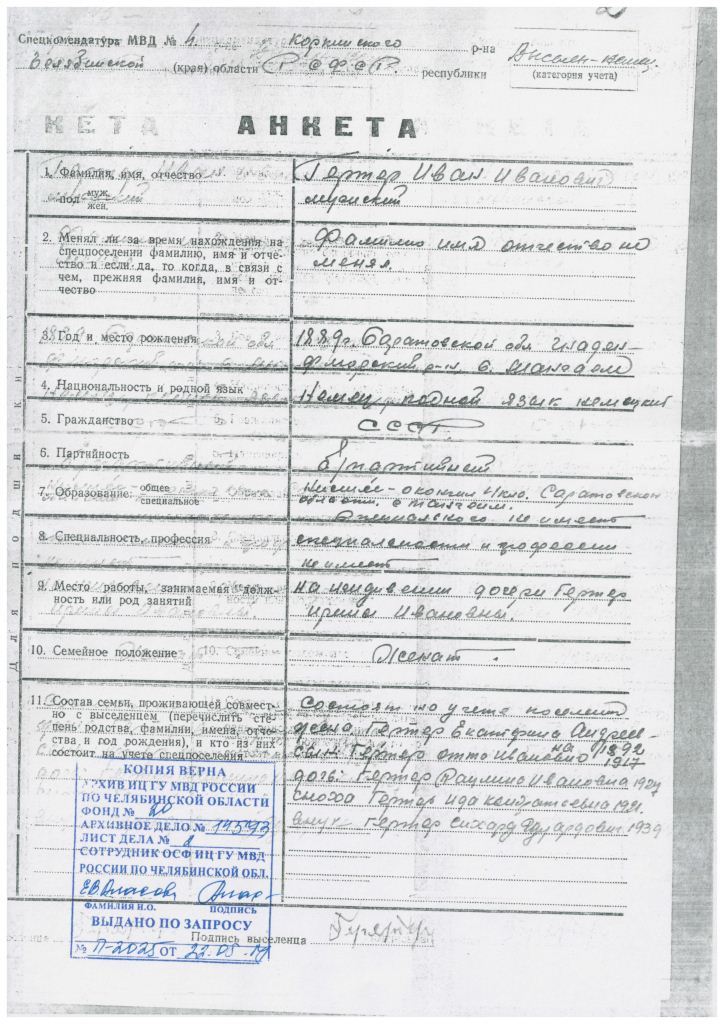 Спецкомендатура МВД № 4 Коркинского р-на
Челябинской (края) области РСФСР. республики
(категория учета)
КЕТА АНКЕТА
1. Фамилия, имя, отчество Гертер Иван Иванович
пол муж. жен. мужской
2. Менял ли за время нахождения на спецпоселении фамилию, имя и отче- Фамилию имя отчество не
ство и если да, то когда, в связи с менял.
чем, прежняя фамилия, имя и от-
чество
3. Год и место рождения 1889г. Саратовской обл Гнаден-
флюрский р-н с.
4. Национальность и родной язык Немец, родной язык немецкий
5. Гражданство СССР.
6. Партийность
7. Образование: общее
специальное
области.
не имеет
8. Специальность, профессия специальности и профессии
не имеет
9. Место работы, занимаемая долж- на иждивении дочери Гертер
ность или род занятий Ивановны.
10. Семейное положение Женат.
11. Состав семьи, проживающей совмест- состоят на учете
но с выселенцем (перечислить сте- жена Гертер Екатерина Андреев-
пень родства, фамилии, имена, отче- на 1892
ства и год рождения), и кто из них сын. Гертер Отто Иванович 1917
состоит на учете спецпоселения дочь: Гертер Ивановна
сноха Гертер Ида
внук Гертер Эдуардович 1939
Для подшивки
КОПИЯ ВЕРНА
АРХИВ ИЦ ГУ МВД РОССИИ
ПО ЧЕЛЯБИНСКОЙ ОБЛАСТИ
ФОНД №
АРХИВНОЕ ДЕЛО № 14593
ЛИСТ ДЕЛА №
СОТРУДНИК ОСФ ИЦ ГУ МВД
РОССИИ ПО ЧЕЛЯБИНСКОЙ ОБЛ.
ФАМИЛИЯ И.О. ПОДПИСЬ
ВЫДАНО ПО ЗАПРОСУ
№ П-2025 ОТ 22.05.
Подпись выселенца